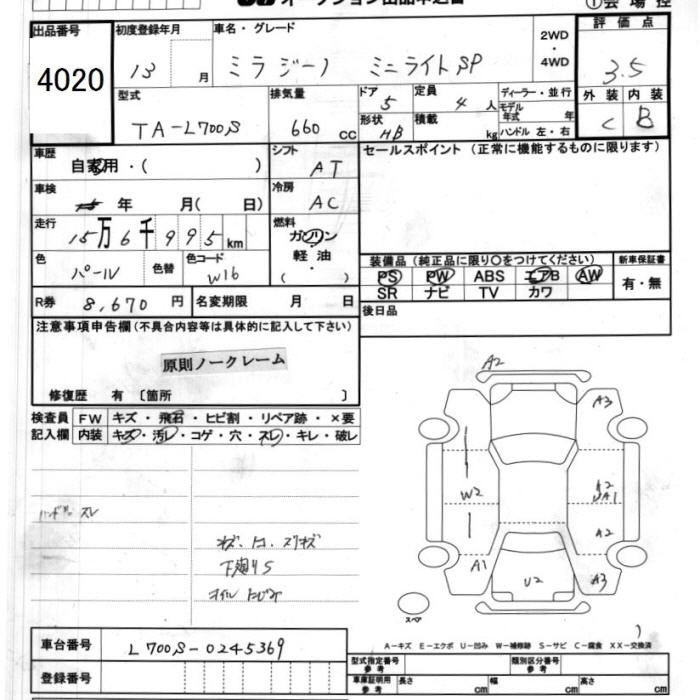 オークション出品申込書 ①会場控
出品番号 初度登録年月 車名・グレード 2WD・4WD 評価点
4020 13 月 ミラジーノ ミニライトSP 3.5
型式 排気量 ドア 定員 ディーラー・並行 外装 内装
TA-L700S 660 cc 5 4 人 モデル年式 年 C B
形状 HB 積載 kg ハンドル 左・右
車歴 シフト セールスポイント (正常に機能するものに限ります)
自家用・( ) AT
車検 冷房
年 月( 日) AC
走行 燃料
15万6千995km ガソリン・軽油・( )
色 色替 色コード 装備品 (純正品に限り○をつけてください) 新車保証書
パール W16 PS PW ABS エアB AW 有・無
SR ナビ TV カワ
R券 8,670 円 名変期限 月 日 後日品
注意事項申告欄(不具合内容等は具体的に記入して下さい)
原則ノークレーム
修復歴 有 〔箇所 〕
検査員 FW キズ・飛石・ヒビ割・リペア跡・×要
記入欄 内装 キズ・汚レ・コゲ・穴・スレ・キレ・破レ
A2
A3
W2
A2
A1
A2
A1 U2 A3
スペア
ハンドル スレ
キズ・凹・スリキズ
下廻りS
オイルにじみ
A-キズ E-エクボ U-凹み W-補修跡 S-サビ C-腐食 XX-交換済
車台番号 L700S-0245369
型式指定番号 参考 類別区分番号 参考
登録番号 車庫証明用 参考 長さ cm 幅 cm 高さ cm